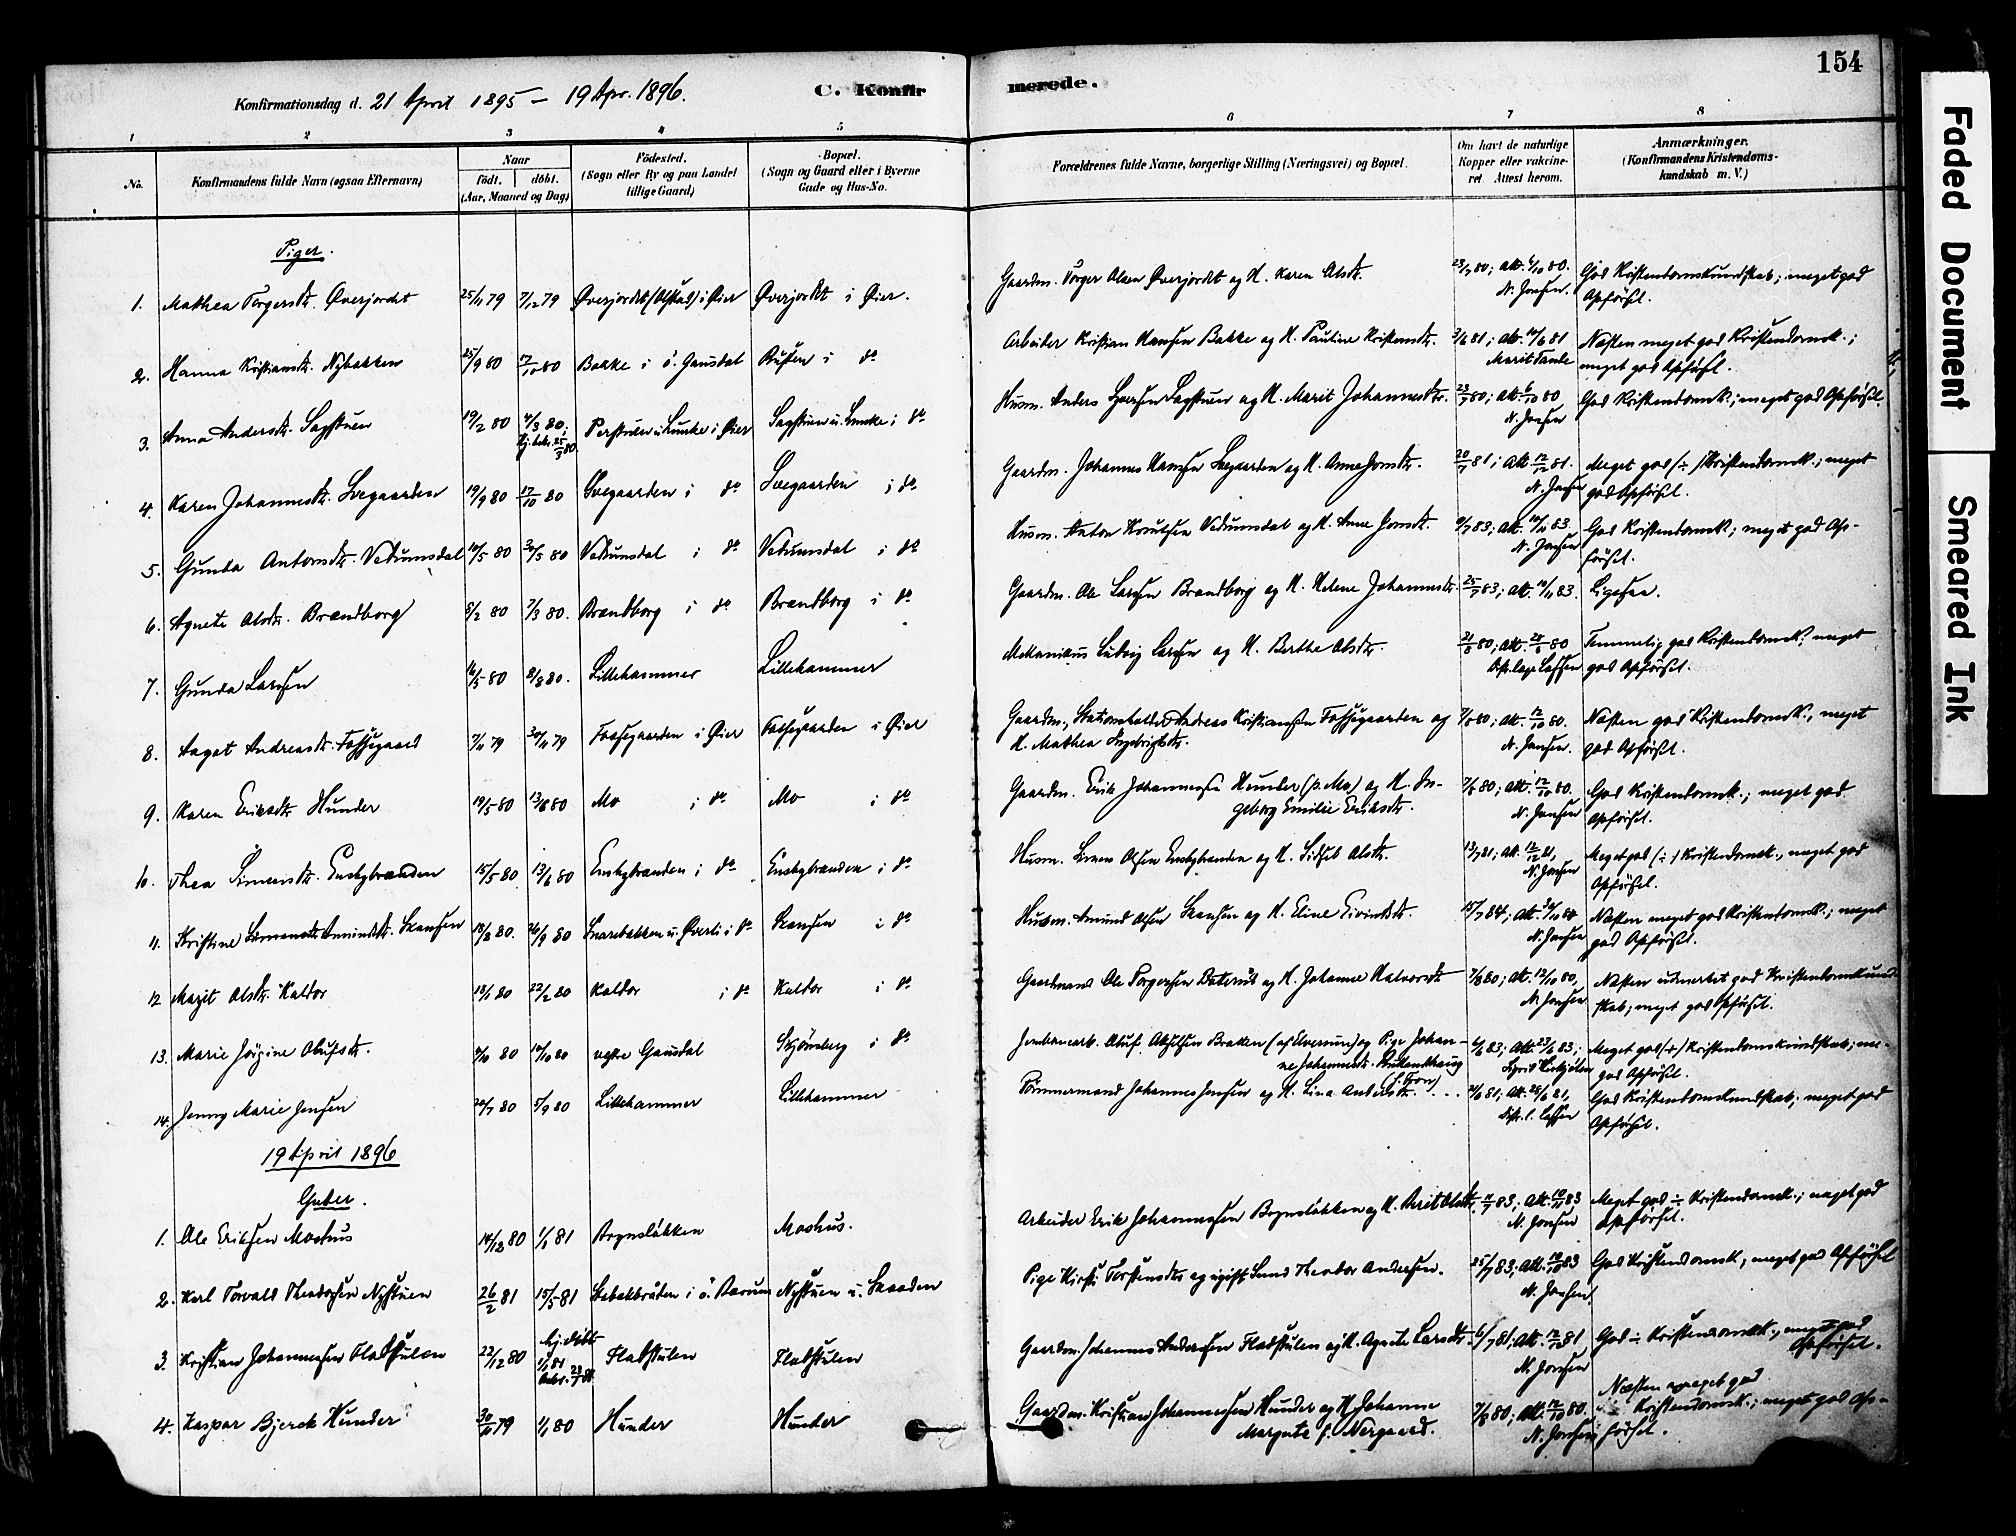 154
Konfirmationsdag d. 21 April 1895 – 19 Apr. 1896.
C. Konfirmerede.
1 2 3 4 5 6 7 8
No.
Konfirmandens fulde Navn (ogsaa Efternavn)
Naar
födt. döbt.
(Aar, Maaned og Dag)
Födested.
(Sogn eller By og paa Landet
tillige Gaard)
Bopæl.
(Sogn og Gaard eller i Byerne
Gade og Hus-No.
Forældrenes fulde Navne, borgerlige Stilling (Næringsvei) og Bopæl.
Om havt de naturlige
Kopper eller vakcine-
ret Attest herom.
Anmærkninger.
(Konfirmandens Kristendoms-
kundskab m. V.)
Piger.
1. Mathea Torgersdtr. Øverjordet 25/11 79 7/12 79 Øverjordet (Alstad) i Øier Øverjordet i Øier. Gaardm. Torger Olsen Øverjordet og H. Karen Olsdtr. 23/7 80; att. 6/10 80. N. Jonsen. God Kristendomskundskab; meget god Opförsel.
2. Hanna Kristiansdtr. Nybakken 25/9 80 17/10 80 Bakke i ö. Gausdal Rusten i do Arbeider Kristian Hansen Bakke og H. Pauline Kristensdtr. Næsten meget god Kristendomsk.; meget god Opförsel.
3. Anna Andersdtr. Sagstuen 19/2 80 4/3 80; i Øier Sagstuen u. i do Husm. Anders Sagstuen og H. Marit Johannesdtr. N. Jonsen God Kristendomsk.; meget god Opförsel.
4. Karen Johannesdtr. Svegaarden 19/9 80 17/10 80 Svegaarden i do Svegaarden i do Gaardm. Johannes Hansen Svegaarden og H. Anne Jonsdtr. 20/7 81; att. 12/12 81. N. Jonsen Meget god (÷) Kristendomsk.; meget god Opförsel.
5. Gunda Antonsdtr. Vedumsdal 10/5 80 30/5 80 Vedumsdal i do Vedumsdal i do Husm. Anton Knutsen Vedumsdal og H. Anne Jonsdtr. N. Jonsen God Kristendomsk.; meget god Opförsel.
6. Agnete Olsdtr. Brandborg 8/2 80 7/3 80. Brandborg i do Brandborg i do Gaardm. Ole Larsen Brandborg og H. Helene Johannesdtr. 25/7 83; att. 10/11 83. Ligesaa.
7. Gunda Larsen 16/5 80 8/8 80. Lillehammer Lillehammer Mekanikus Ludvig Larsen og H. Berthe Olsdtr. Temmelig god Kristendomsk.; meget god Opförsel.
8. Aagot Andreasdtr. Fossegaard 7/11 79 30/11 79 Fossegaarden i Øier Fossegaarden i Øier Gaardm., Stationsholder Andreas Kristiansen Fossegaarden og H. Mathea Ingebrigtsdtr. 7/8 80; att. 12/10 80. N. Jonsen. Næsten god Kristendomsk., meget god Opförsel.
9. Karen Eriksdtr. Hunder 19/5 80 13/6 80 Mo i do Mo i do Gaardm. Erik Johannessen Hunder (p. Mo) og H. Ingeborg Emilie Eriksdtr. 7/8 80; att. 12/10 80. N. Jonsen God Kristendomsk.; meget god Opförsel.
10. Thea Simensdtr. Ensbybraaden 15/5 80 13/6 80 Ensbybraaden i do Ensbybraaden i do Husm. Simen Olsen Ensbybraaden og H. Sidsel Olsdtr. 13/7 81; att. 12/12 81, N. Jonsen Meget god (÷) Kristendomsk., meget god Opförsel.
11. Kristine Amundsdtr. Skansen 18/8 80. 26/9 80 Snarebakken u. Øverli i do Skansen i do Husm. Amund Olsen Skansen og H. Eline Eivindsdtr. 15/7 84; att. N. Jonsen Næsten meget god Kristendomsk.; meget god Opförsel.
12 Marit Olsdtr. Kaldor 18/1 80 22/2 80 Kaldor i do Kaldor i do Gaardmand Ole Torgersen og H. Johanne Halvorsdtr. 7/8 80; att. 12/10 80, N. Jonsen Næsten udmerket god Kristendomskundskab; meget god Opförsel.
13. Marie Jörgine Olufsdtr. 4/10 80 Gausdal Skjönsberg i do Jernbanearb. Oluf Bakken (af Elverum) og Pige Johanne Johannesdtr. (i Fron) Meget god (÷) Kristendomskundskab; meget god Opförsel.
14. Jenny Marie Jensen 24/7 80 5/9 80 Lillehammer Lillehammer Tömmermand Johannes Jensen og H. Lina Andersdtr. .... God Kristendomskundskab; meget god Opförsel.
19 April 1896
Gutter.
1. Ole Eriksen Moshus 14/12 80 1/1 81 Rognslökken Moshus. Arbeider Erik Johannessen Rognslökken og H. Berit Olsdtr. N. Jonsen Meget god ÷ Kristendomsk.; meget god Opförsel.
2. Karl Torvald Theodorsen Nystuen 26/2 81 15/5 81 i ö. Bærum Nystuen u. Skaaden Pige Kirsti Torstensdtr. og ugift Svend Theodor Andersen. 25/7 83; att. 10/10 83 N. Jonsen God Kristendomsk.; meget god Opförsel
3. Kristian Johannessen Fladstulen 22/12 80 Hj. döbt 1/1 81 Fladstulen Fladstulen Gaardm. Johannes Andersen Fladstulen og H. Agnete Larsdtr. 6/7 81; att. N. Jonsen God ÷ Kristendomsk., meget god Opförsel.
4. Kaspar Bjerck Hunder 30/11 79 1/1 80 Hunder Hunder Gaardm. Kristian Johannessen Hunder og H. Johanne Margrete f. Nergaard. 7/8 80; att. 12/10 80. N. Jonsen Næsten meget god Kristendomsk.; meget god Opförsel.
Faded Document
Smeared Ink